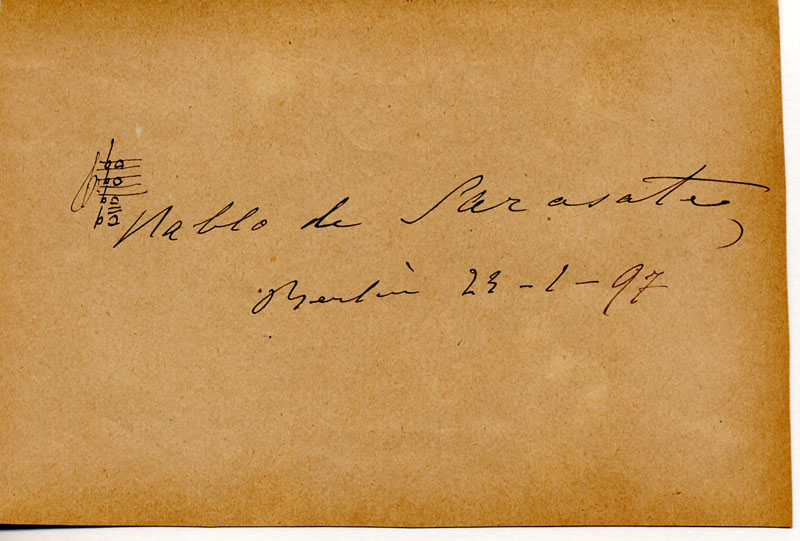 Pablo de Sarasate
Berlin 23-1-97